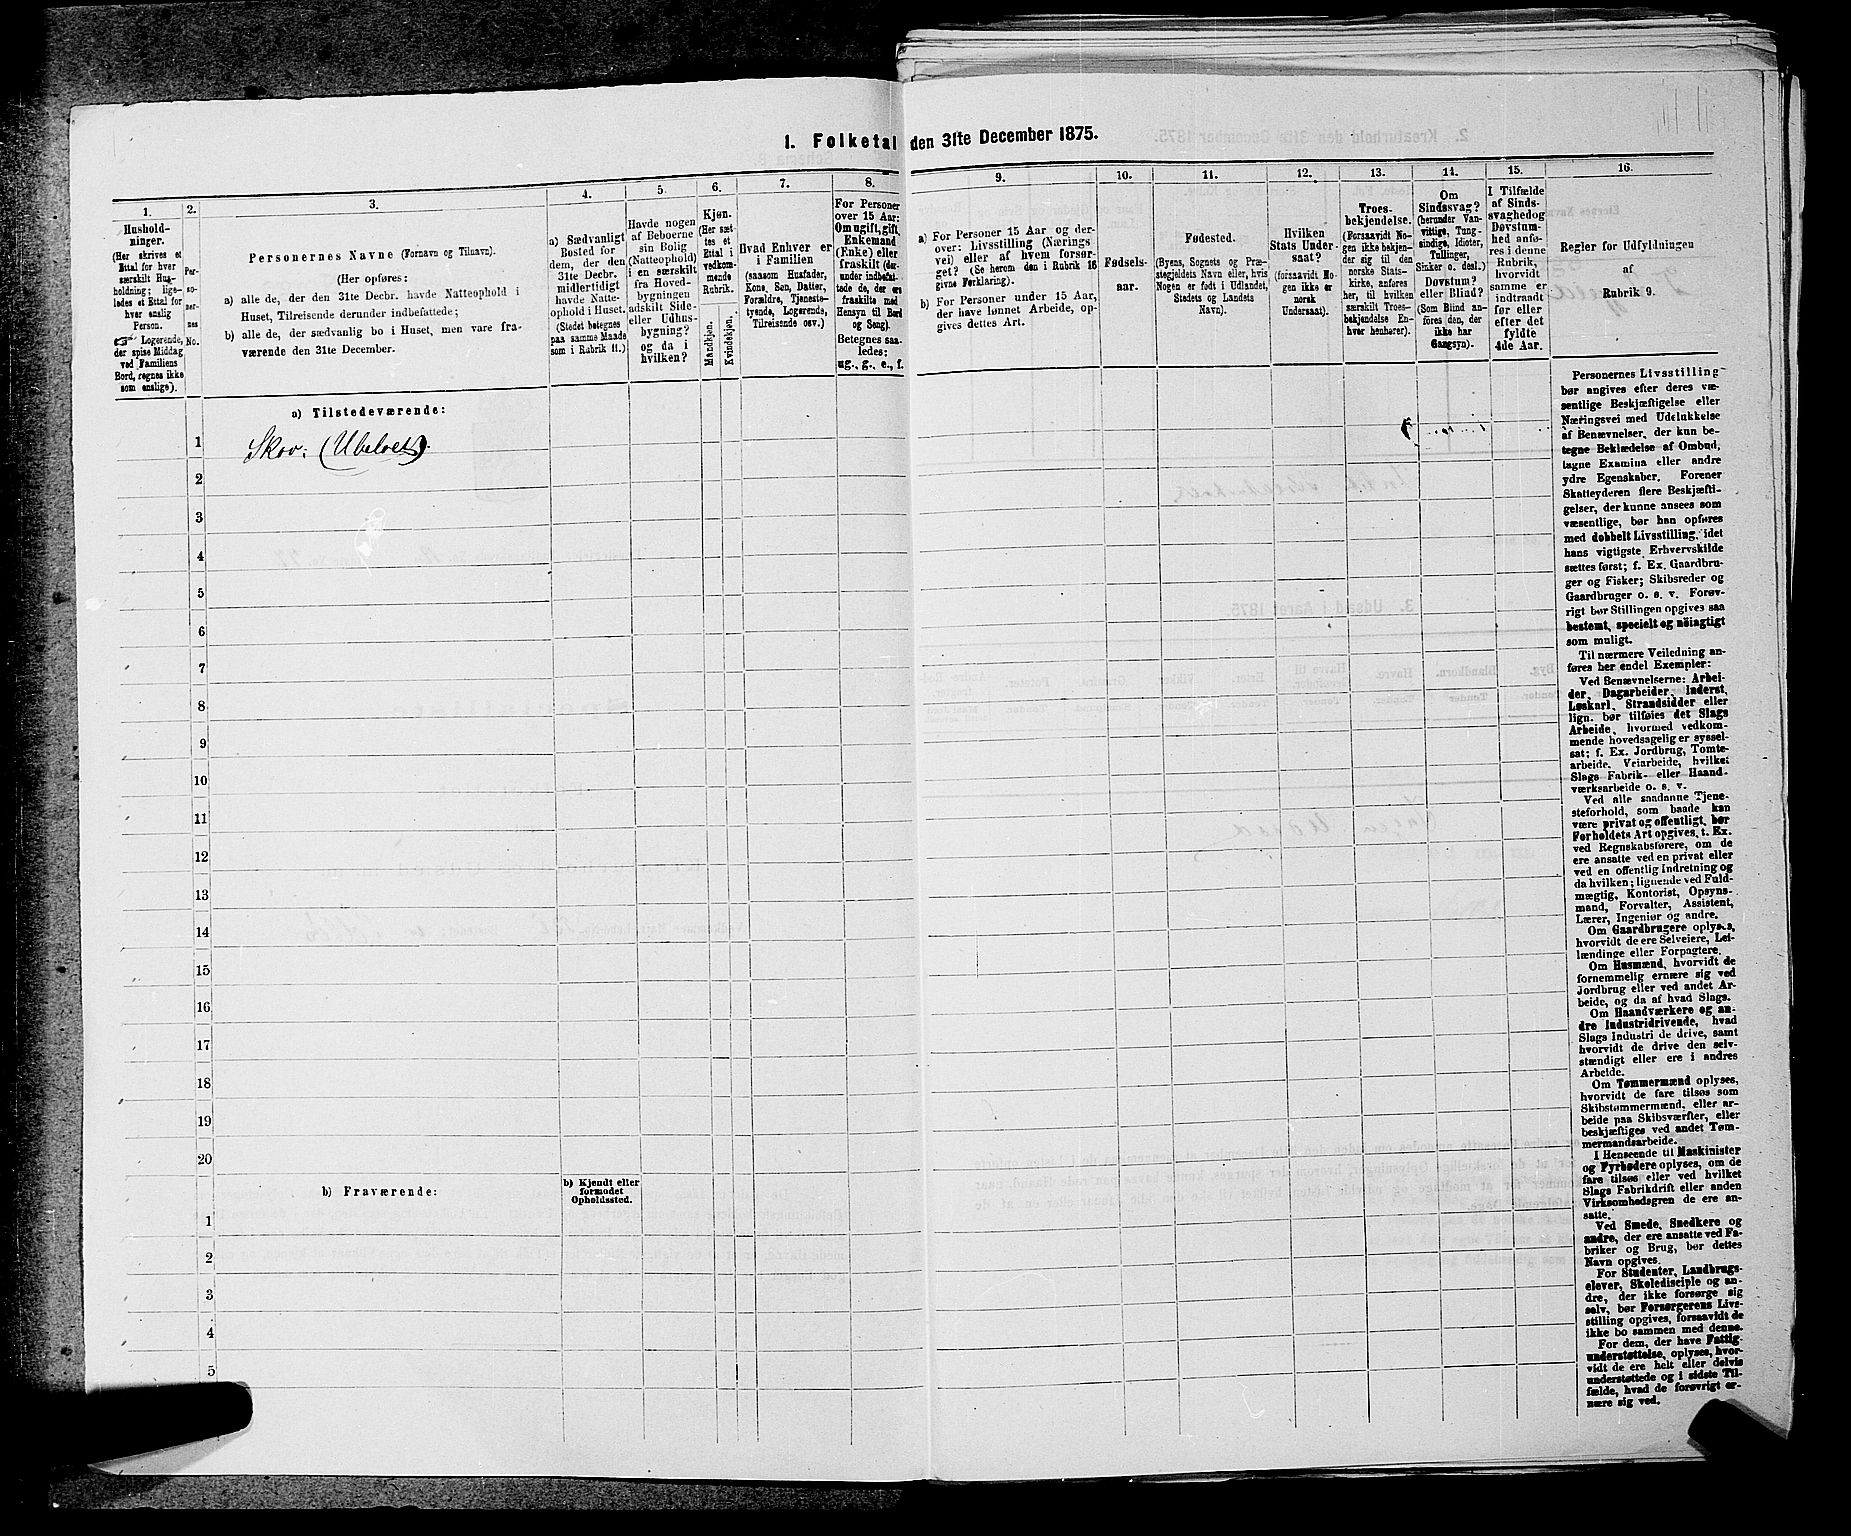 1. Folketal den 31te December 1875.
1.
Hushold-
ninger.
(Her skrives et
Ettal for hver
særskilt Hus-
holdning; lige-
ledes et Ettal for
hver enslig
Person.
Logerende,
der spise Middag
ved Familiens
Bord, regnes ikke
som enslige).
2.
Per-
so-
ner-
nes
No.
3.
Personernes Navne (Fornavn og Tilnavn).
(Her opføres:
a) alle de, der den 31te Decbr. havde Natteophold i
Huset, Tilreisende derunder indbefattede;
b) alle de, der sædvanlig bo i Huset, men vare fra-
værende den 31te December.
4.
a) Sædvanligt
Bosted for
dem, der den
31te Decbr.
midlertidigt
havde Natte-
ophold i Huset.
(Stedet betegnes
paa samme Maade
som i Rubrik 11.)
5.
Havde nogen
af Beboerne
sin Bolig
(Natteophold)
i en særskilt
fra Hoved-
bygningen
adskilt Side-
eller Udhus-
bygning?
og da i
hvilken?
6.
Kjøn.
(Her sæt-
tes et
Ettal i
vedkom-
mende
Rubrik.
Mandkjøn.
Kvindekjøn.
7.
Hvad Enhver er
i Familien
(saasom Husfader,
Kone, Søn, Datter,
Forældre, Tjeneste-
tyende, Logerende,
Tilreisende osv.)
8.
For Personer
over 15 Aar:
Om ugift, gift,
Enkemand
(Enke) eller
fraskilt (der-
under indbefat-
tede de, der ere
fraskilte med
Hensyn til Bord
og Seng).
Betegnes saa-
ledes:
ug., g., e., f.
9.
a) For Personer 15 Aar og der-
over: Livsstilling (Nærings
vei) eller af hvem forsør-
get? (Se herom den i Rubrik 16
givne Forklaring).
b) For Personer under 15 Aar,
der have lønnet Arbeide, op-
gives dettes Art.
10.
Fødsels-
aar.
11.
Fødested.
(Byens, Sognets og Præ-
stegjeldets Navn eller, hvis
Nogen er født i Udlandet,
Stedets og Landets
Navn).
12.
Hvilken
Stats Under-
saat?
(forsaavidt No-
gen ikke er
norsk
Undersaat).
13.
Troes-
bekjendelse.
(Forsaavidt No-
gen ikke bekjen-
der sig til den
norske Stats-
kirke, anføres
her, til hvilken
særskilt Troes-
bekjendelse En-
hver henhører).
14.
Om
Sindssvag?
(herunder Van-
vittige, Tung-
sindige, Idioter,
Tullinger,
Sinker o. desl.)
Døvstum?
eller Blind?
(Som Blind an-
føres den, der
ikke har
Gangsyn).
15.
I Tilfælde
af Sinds-
svaghed og
Døvstum-
hed anfø-
res i denne
Rubrik,
hvorvidt
samme er
indtraadt
før eller
efter det
fyldte
4de Aar.
16.
Regler for Udfyldningen
af
Rubrik 9.
a) Tilstedeværende:
1 Skov. (Ubeboet).
2
3
4
5
6
7
8
9
10
11
12
13
14
15
16
17
18
19
20
b) Fraværende:
b) Kjendt eller
formodet
Opholdssted.
1
2
3
4
5
Personernes Livsstilling
bør angives efter deres væ-
sentlige Beskjæftigelse eller
Næringsvei med Udelukkelse
af Benævnelser, der kun be-
tegne Beklædelse af Ombud,
tagne Examina eller andre
ydre Egenskaber. Forener
Skatteyderen flere Beskjæfti-
gelser, der kunne ansees som
væsentlige, bør han opføres
med dobbelt Livsstilling, idet
hans vigtigste Erhvervskilde
sættes først; f. Ex. Gaardbru-
ger og Fisker; Skibsreder og
Gaardbruger o. s. v. Forøv-
rigt bør Stillingen opgives saa
bestemt, specielt og nøiagtigt
som muligt.
Til nærmere Veiledning an-
føres her endel Exempler:
Ved Benævnelserne: Arbei-
der, Dagarbeider, Inderst,
Løskarl, Strandsidder eller
lign. bør tilføies det Slags
Arbeide, hvormed vedkom-
mende hovedsagelig er syssel-
sat; f. Ex. Jordbrug, Tomte-
arbeide, Veiarbeide, hvilket
Slags Fabrik- eller Haand-
værksarbeide o. s. v.
Ved alle saadanne Tjene-
steforhold, som baade kan
være privat og offentligt, bør
Forholdets Art opgives, t. Ex.
ved Regnskabsførere, om de
ere ansatte ved en privat eller
ved en offentlig Indretning og
da hvilken; lignende ved Fuld-
mægtig, Kontorist, Opsyns-
mand, Forvalter, Assistent,
Lærer, Ingeniør og andre.
Om Gaardbrugere oplyses,
hvorvidt de ere Selveiere, Lei-
lændinge eller Forpagtere.
Om Husmænd, hvorvidt de
fornemmelig ernære sig ved
Jordbrug eller ved andet Ar-
beide, og da af hvad Slags.
Om Haandværkere og an-
dre Industridrivende, hvad
Slags Industri de drive, samt
hvorvidt de drive den selv-
stændigt eller ere i andres
Arbeide.
Om Tømmermænd oplyses,
hvorvidt de fare tilsøs som
Skibstømmermænd, eller ar-
beide paa Skibsværfter, eller
beskjæftiges ved andet Tøm-
mermandsarbeide.
I Henseende til Maskinister
og Fyrbødere oplyses, om de
fare tilsøs eller ved hvilket
Slags Fabrikdrift eller anden
Virksomhedsgren de ere an-
satte.
Ved Smede, Snedkere og
andre, der ere ansatte ved Fa-
briker og Brug, bør dettes
Navn opgives.
For Studenter, Landbrugs-
elever, Skoledisciple og an-
dre, der ikke forsørge sig
selv, bør Forsørgerens Livs-
stilling opgives, forsaavidt de
ikke bo sammen med denne.
For dem, der have Fattig-
understøttelse, oplyses, hvor-
vidt de ere helt eller delvis
understøttede og i sidste Til-
fælde, hvad de forøvrigt er-
nære sig ved.